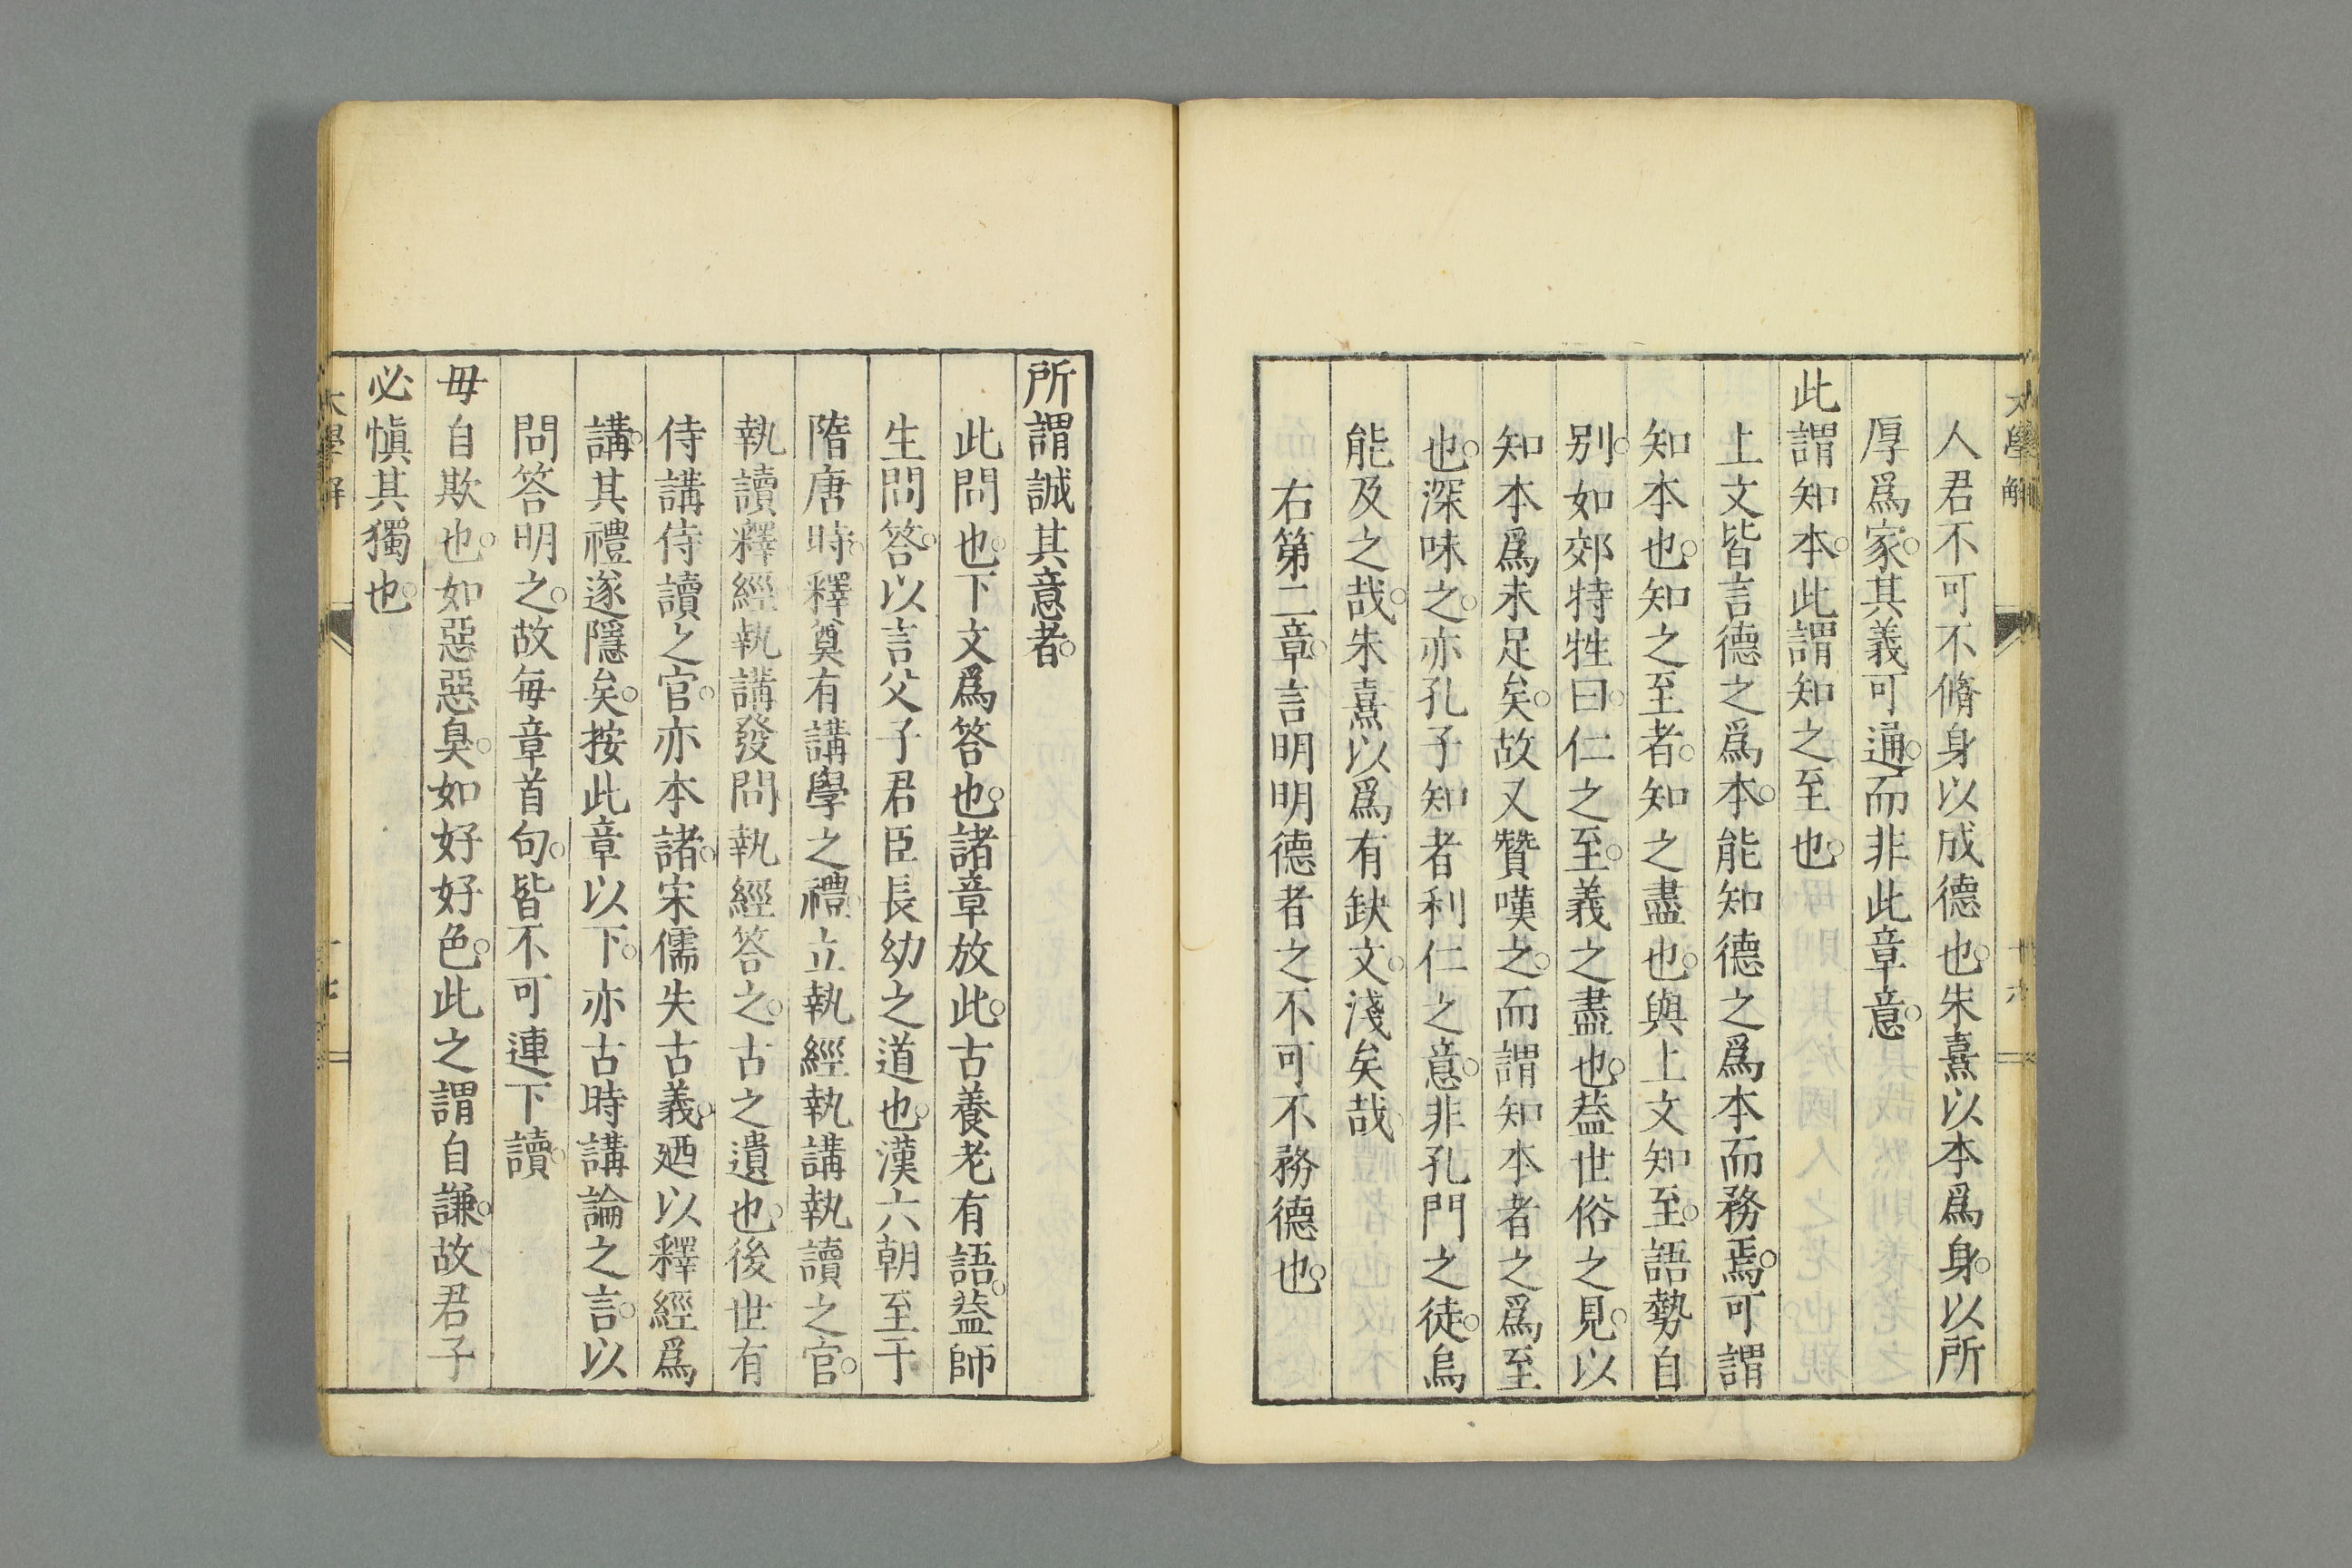 大學解
十六
人君不可不脩身以成德也。朱熹以本爲身。以所
厚爲家。其義可通。而非此章意。
此謂知本。此謂知之至也。
上文皆言德之爲本。能知德之爲本而務焉。可謂
知本也。知之至者。知之盡也。與上文知至。語勢自
別。如郊特牲曰。仁之至。義之盡也。葢世俗之見。以
知本爲未足矣。故又贊嘆之。而謂知本者之爲至
也。深味之。亦孔子知者利仁之意。非孔門之徒。烏
能及之哉。朱熹以爲有缺文。淺矣哉。
右第二章。言明明德者之不可不務德也。
所謂誠其意者。
此問也。下文爲答也。諸章放此。古養老有語。葢師
生問答。以言父子君臣長幼之道也。漢六朝至于
隋唐時。釋奠有講學之禮。立執經執講執讀之官。
執讀釋經執講發問執經答之。古之遺也。後世有
侍講侍讀之官。亦本諸。宋儒失古義。廼以釋經爲
講。其禮遂隱矣。按此章以下。亦古時講論之言。以
問答明之。故每章首句。皆不可連下讀。
毋自欺也。如惡惡臭。如好好色。此之謂自謙。故君子
必愼其獨也。
大學解
十七